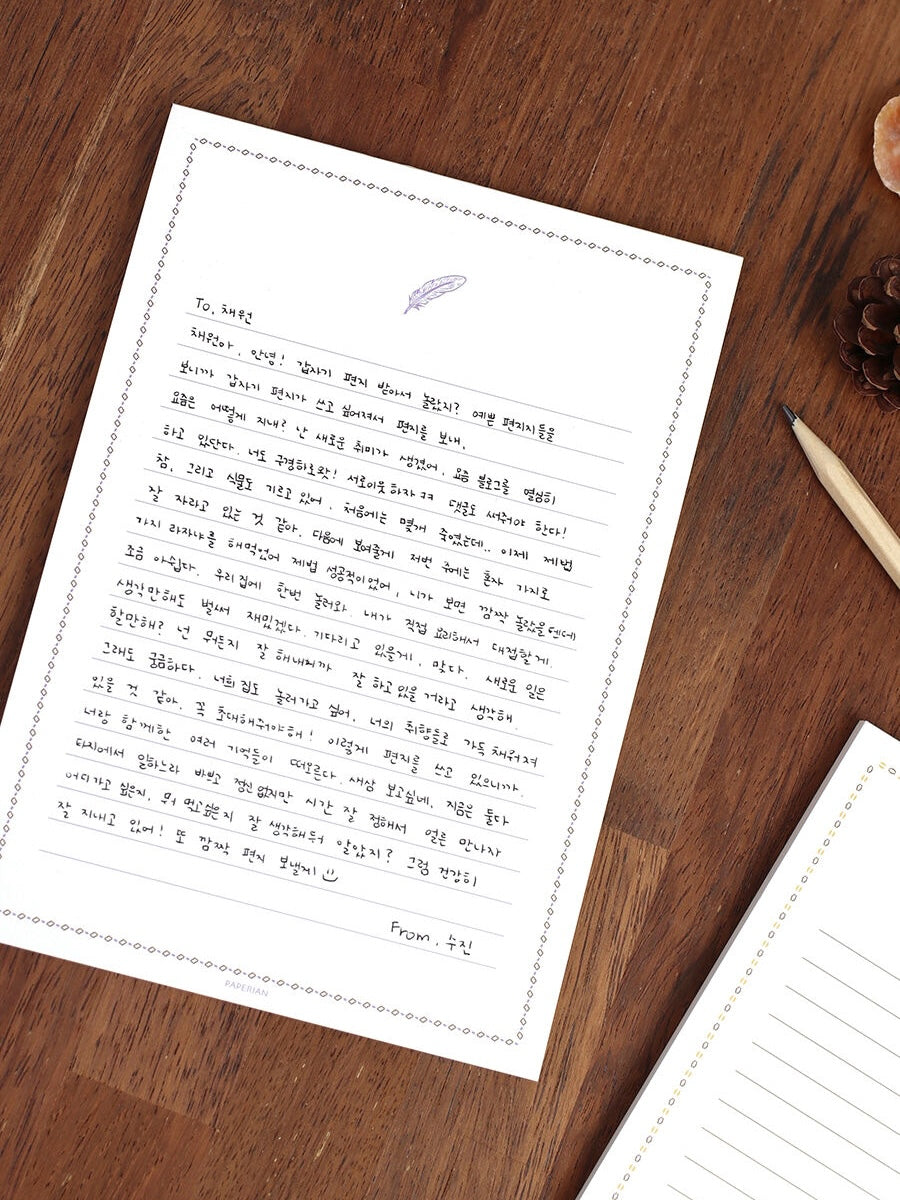 To. 채원
채원아. 안녕! 갑자기 편지 받아서 놀랐지? 예쁜 편지지들을
보니까 갑자기 편지가 쓰고 싶어져서 편지를 보내.
요즘은 어떻게 지내? 난 새로운 취미가 생겼어. 요즘 블로그를 열심히
하고 있단다. 너도 구경하로왓! 서로이웃하자ㅋㅋ 댓글도 써줘야 한다!
참, 그리고 식물도 기르고있어. 처음에는 몇개 죽였는데.. 이제 제법
잘 자라고 있는 것 같아. 다음에 보여줄게 저번 주에는 혼자 가지로
가지 라자냐를 해먹었어 제법 성공적이었어, 니가 보면 깜짝 놀랐을텐데
조금 아쉽다. 우리집에 한번 놀러와. 내가 직접 요리해서 대접할게.
생각만해도 벌써 재밌겠다. 기다리고 있을게. 맞다. 새로운 일은
할만해? 넌 뭐든지 잘 해내니까 잘 하고있을 거라고 생각해
그래도 궁금하다. 너희집도 놀러가고 싶어. 너의 취향들로 가득채워져
있을 것 같아. 꼭 초대해줘야해! 이렇게 편지를 쓰고 있으니까.
너랑 함께한 여러 기억들이 떠오른다. 새삼 보고싶네. 지금은 둘다
타지에서 일하느라 바쁘고 정신없지만 시간 잘 정해서 얼른 만나자
어디가고 싶은지, 뭐 먹고싶은지 잘 생각해둬 알았지? 그럼 건강히
잘 지내고 있어! 또 깜짝 편지 보낼게
From. 수진
PAPERIAN